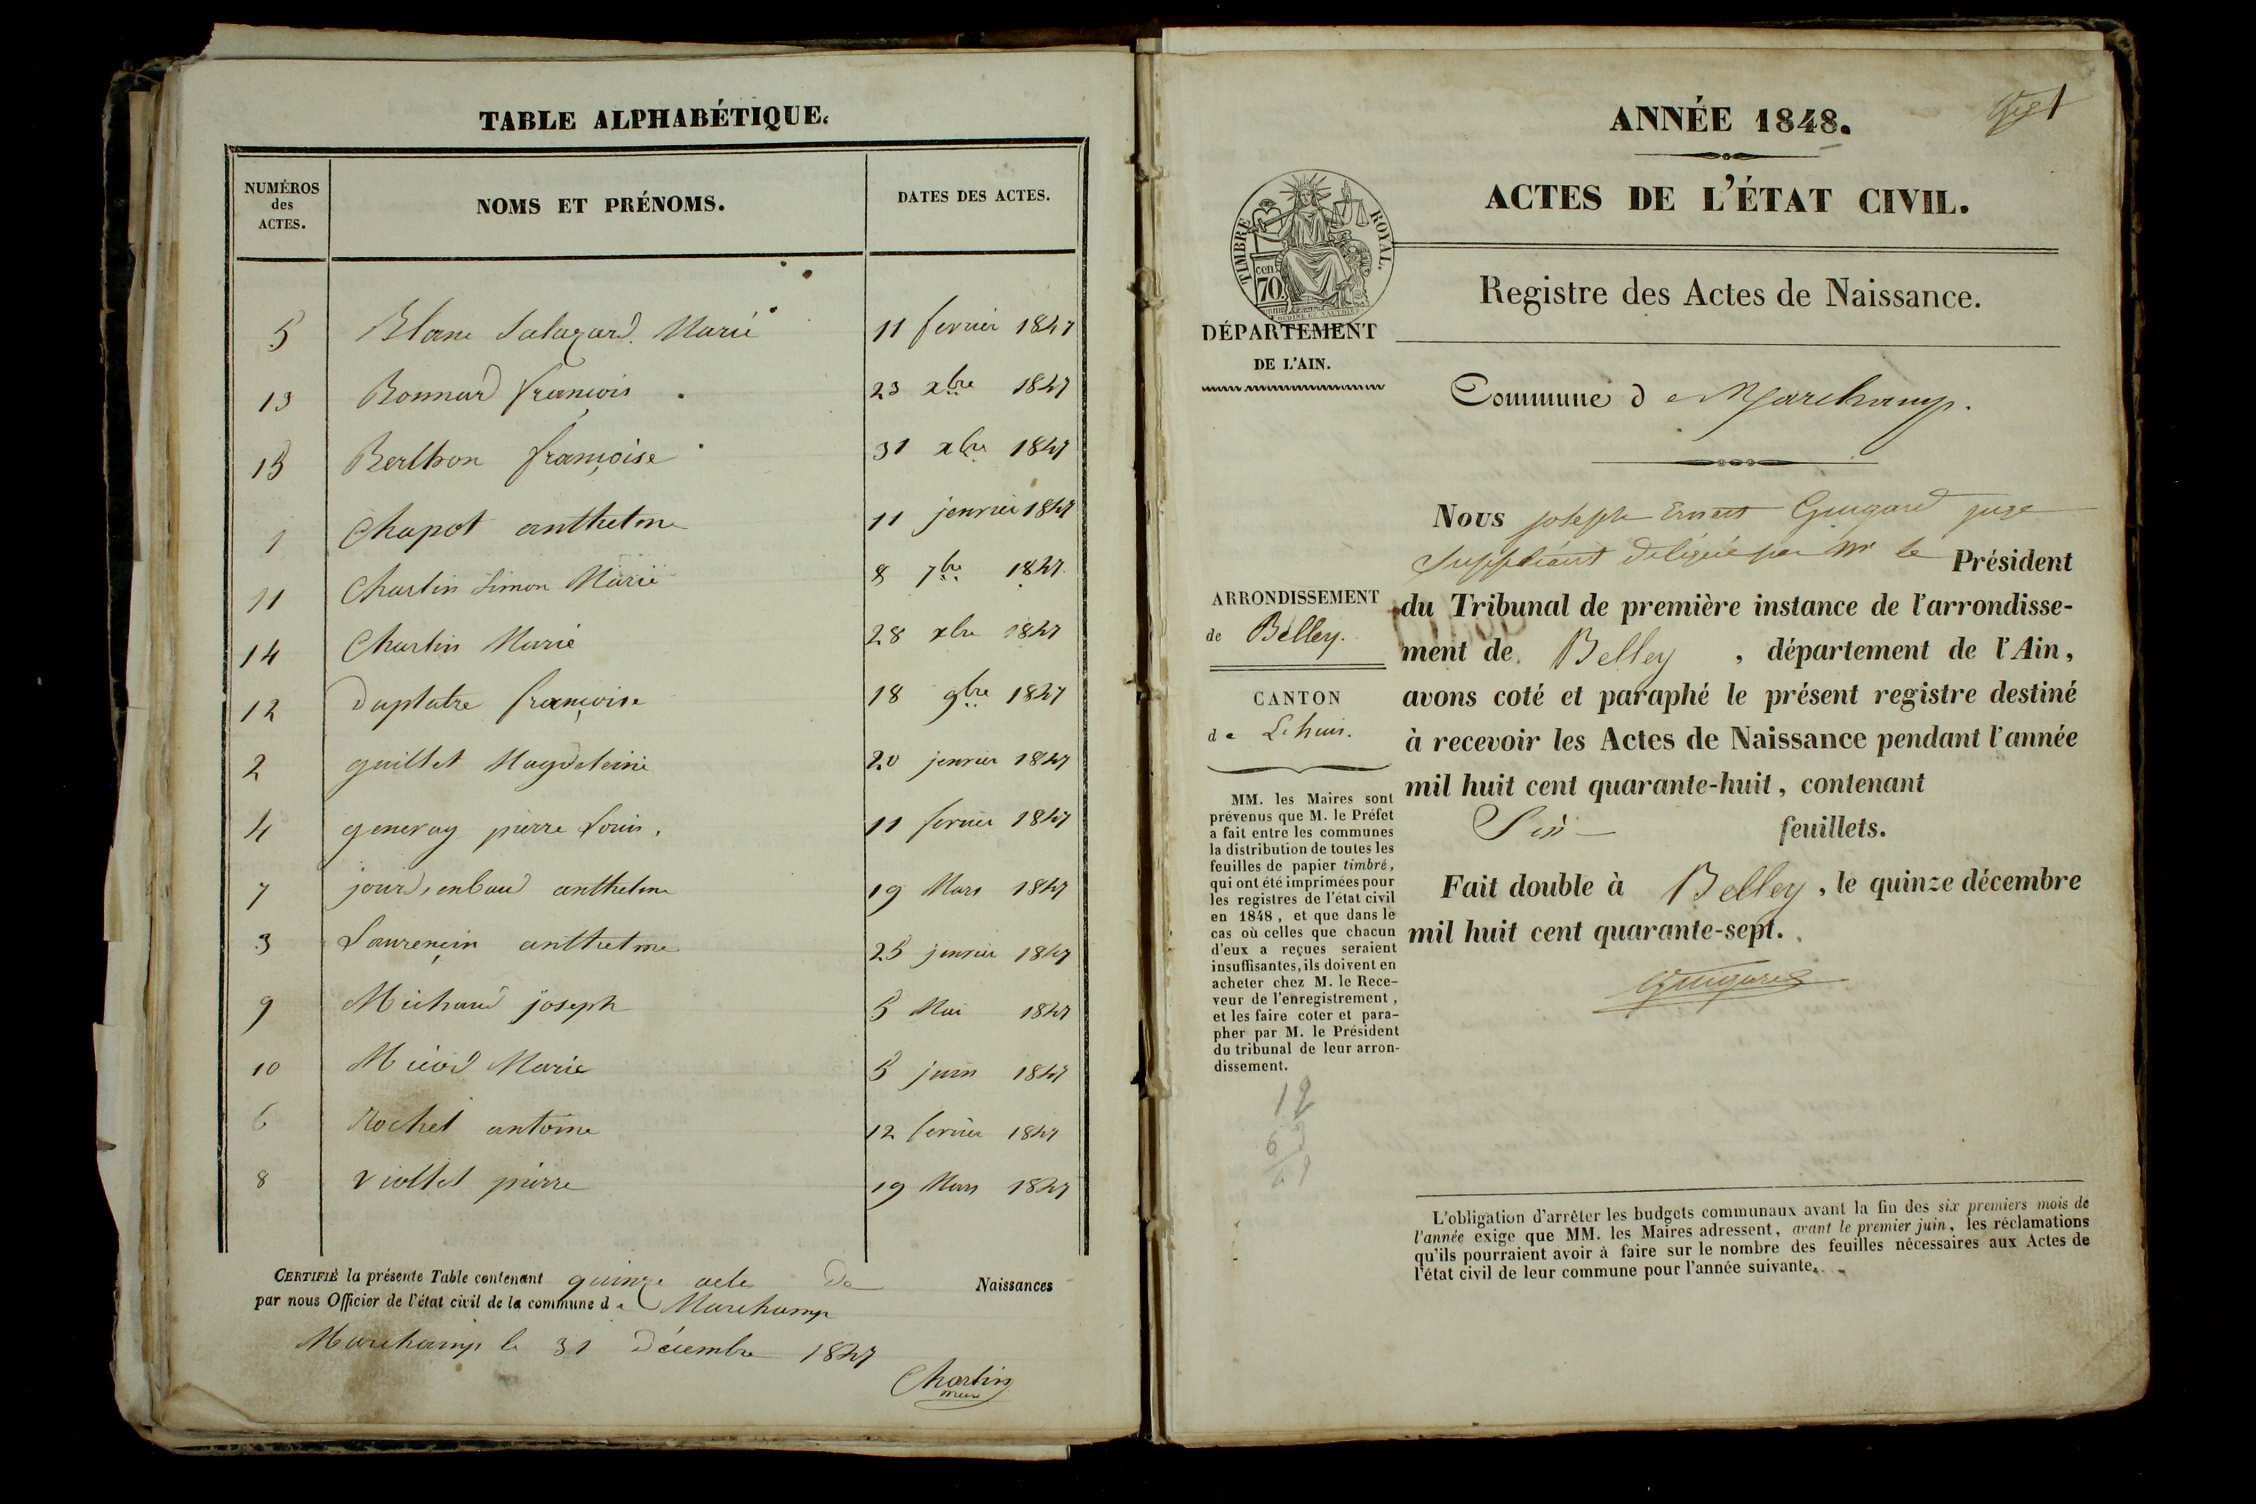 TABLE ALPHABÉTIQUE.
NUMÉROS des ACTES. NOMS ET PRÉNOMS. DATES DES ACTES.
5 Blanc Salazard Marie 11 fevrier 1847
13 Bonnard françois 23 xbre 1847
15 Berthon françoise 31 xbre 1847
1 Chapot anthelme 11 jenvier 1847
11 Charlin Simon Marie 8 7bre 1847
14 Charlin Marie 28 xbre 1847
12 Duplatre françoise 18 9bre 1847
2 guillet Magdeleine 20 jenvier 1847
4 genevay pierre Louis 11 fevrier 1847
7 anthelme 19 Mars 1847
3 Laurençin anthelme 25 jenvier 1847
9 Michaud joseph 5 Mai 1847
10 Marie 5 juin 1847
6 Rochet antoine 12 fevrier 1847
8 viollet pierre 19 Mars 1847
CERTIFIÉ la présente Table contenant quinze acte de Naissances
par nous Officier de l'état civil de la commune de Marchamp
Marchamp le 31 Décembre 1847
Charlin
maire
1
ANNÉE 1848.
ACTES DE L'ÉTAT CIVIL.
TIMBRE ROYAL.
cen. 70
Registre des Actes de Naissance.
DÉPARTEMENT
DE L'AIN.
Commune de Marchamp.
Nous joseph Ernest Guigard juge
Suppléant délégué par Mr le Président
du Tribunal de première instance de l'arrondisse-
ment de Belley, département de l'Ain,
avons coté et paraphé le présent registre destiné
à recevoir les Actes de Naissance pendant l'année
mil huit cent quarante-huit, contenant
Six feuillets.
Fait double à Belley, le quinze décembre
mil huit cent quarante-sept.
Guigard
ARRONDISSEMENT
de Belley.
CANTON
de Lhuis.
MM. les Maires sont
prévenus que M. le Préfet
a fait entre les communes
la distribution de toutes les
feuilles de papier timbré,
qui ont été imprimées pour
les registres de l'état civil
en 1848, et que dans le
cas où celles que chacun
d'eux a reçues seraient
insuffisantes, ils doivent en
acheter chez M. le Rece-
veur de l'enregistrement,
et les faire coter et para-
pher par M. le Président
du tribunal de leur arron-
dissement.
12
L'obligation d'arrêter les budgets communaux avant la fin des six premiers mois de
l'année exige que MM. les Maires adressent, avant le premier juin, les réclamations
qu'ils pourraient avoir à faire sur le nombre des feuilles nécessaires aux Actes de
l'état civil de leur commune pour l'année suivante.